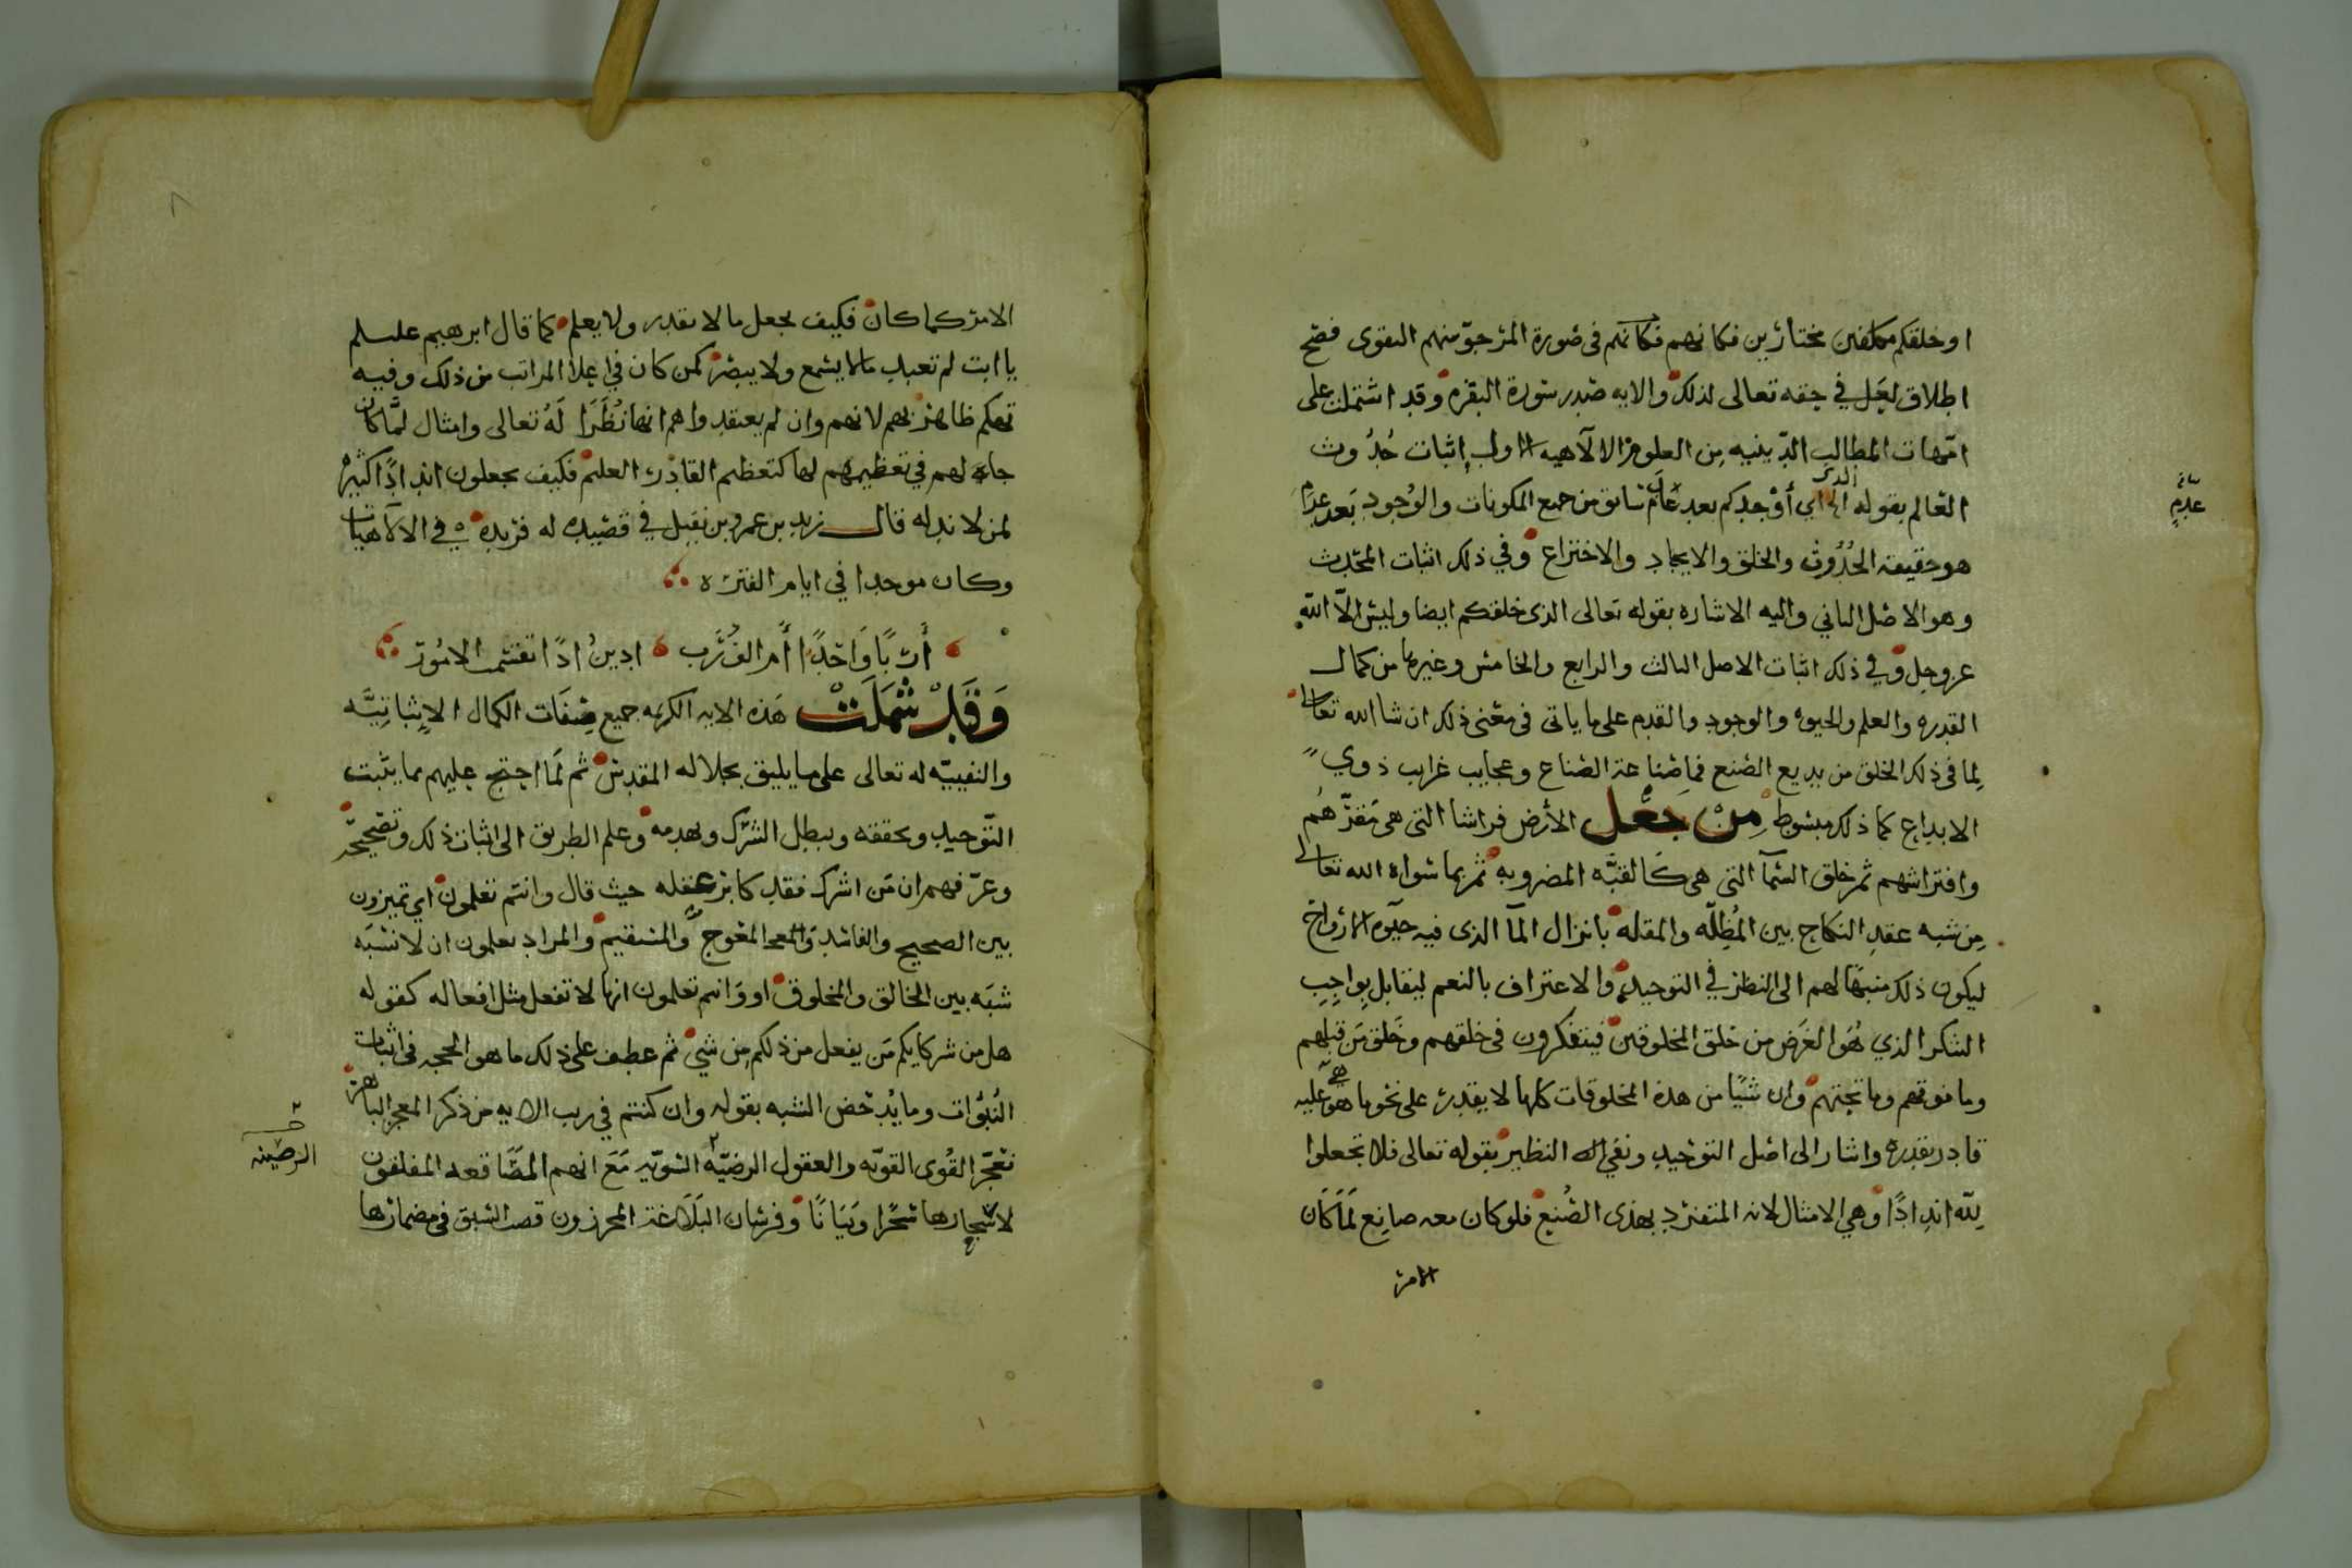 او خلقكم مكلفين مختارين فكانهم فكانهم في صورة المرجو منهم التقوى فصح
اطلاق لعل في حقه تعالى لذلك والايه صدر سورة البقره وقد اشتملت على
امهات المطالب الدينيه من العلوم الالاهيه الاول اثبات حدوث
العالم بقوله الذي اي أوجدكم بعد عدم سابق من جميع المكونات والوجود بعد عدم
سابق
عدم
هو حقيقة الحدوث والخلق والايجاد والاختراع وفي ذلك اثبات المحدث
وهو الاصل الثاني واليه الاشاره بقوله تعالى الذي خلقكم ايضا وليس الا الله
عز وجل وفي ذلك اثبات الاصل الثالث والرابع والخامس وغيرها من كمال
القدره والعلم والحيوة والوجود والقدم على ما ياتي في معنى ذلك ان شا الله تعالى
لما في ذلك الخلق من بديع الصنع فما صناعة الصناع وعجايب غرايب ذوي
الابداع كما ذلك مبسوط من جعل الأرض فراشا التي هي مقرهم
وافتراشهم ثم خلق السمآ التي هي كالقبه المضروبه ثم بما سواه الله تعالى
من شبه عقد النكاح بين المظله والمقله بانزال المآ الذي فيه حيوة الارواح
ليكون ذلك منبها لهم الى النظر في التوحيد والاعتراف بالنعم ليتقابل بواجب
الشكر الذي هو الغرض من خلق المخلوقين فيتفكرون في خلقهم وخلق من قبلهم
وما فوقهم وما تحتهم وان شيا من هذه المخلوقات كلها لا يقدر على نحو ما هو عليه
قادر بقدره واشار الى اصل التوحيد ونفي النظير بقوله تعالى فلا تجعلوا
لله اندادًا وهي الامثال لانه المتفرد بهذى الصنع فلو كان معه صانع لما كان
الامر
الامر كما كان فكيف يجعل ما لا يقدر ولا يعلم كما قال ابرهيم عليسلم
يا ابت لم تعبد مالا يسمع ولا يبصر كمن كان في اعلا المراتب من ذلك وفيه
تهكم ظاهر بهم لانهم وان لم يعتقدوا هم انها نُظَرَا لَهُ تعالى وامثال لمَّا كان
حاله لهم في تعظيمهم لها كتعظيم القادر العليم فكيف يجعلون اندادًا كثيره
لمن لا ند له قال زيد بن عمرو بن نفيل في قصيده له فريده في الالاهيات
وكان موحدا في ايام الفتره
أربًا واحدًا أم الف رب ادين اذا تقسمت الامور
وَقَدْ شَمَلَتْ هذه الايه الكريمه جميع صفات الكمال الإثباتيَّه
والنفييّه له تعالى على ما يليق بجلاله المقدس ثم لما احتج عليهم بما يثبت
التوحيد ويحققه ويبطل الشرك ويهدمه وعلم الطريق الى اثبات ذلك وتصحيحه
وعرّفهم ان من اشرك فقد كابر عقله حيث قال وانتم تعلمون اي تميزون
بين الصحيح والفاسد والمعوج والمستقيم والمراد تعلمون ان لا نسبه
شبه بين الخالق والمخلوق او وانتم تعلمون انها لا تفعل مثل افعاله كقوله
هل من شركايكم من يفعل من ذلكم من شي ثم عطف على ذلك ما هو الحجه في اثبات
النُبوّات وما يدحض الشبه بقوله وان كنتم في ريب الايه من ذكر المعجز الباهر
تعجز القُوى القويّه والعقول الرضيّه السويّه مَعَ انهم المصاقعه المفلقون
الرصينه
سحرًا وبيانًا وفرسان البلاغة المحرزون قصب السبق في مضمارها